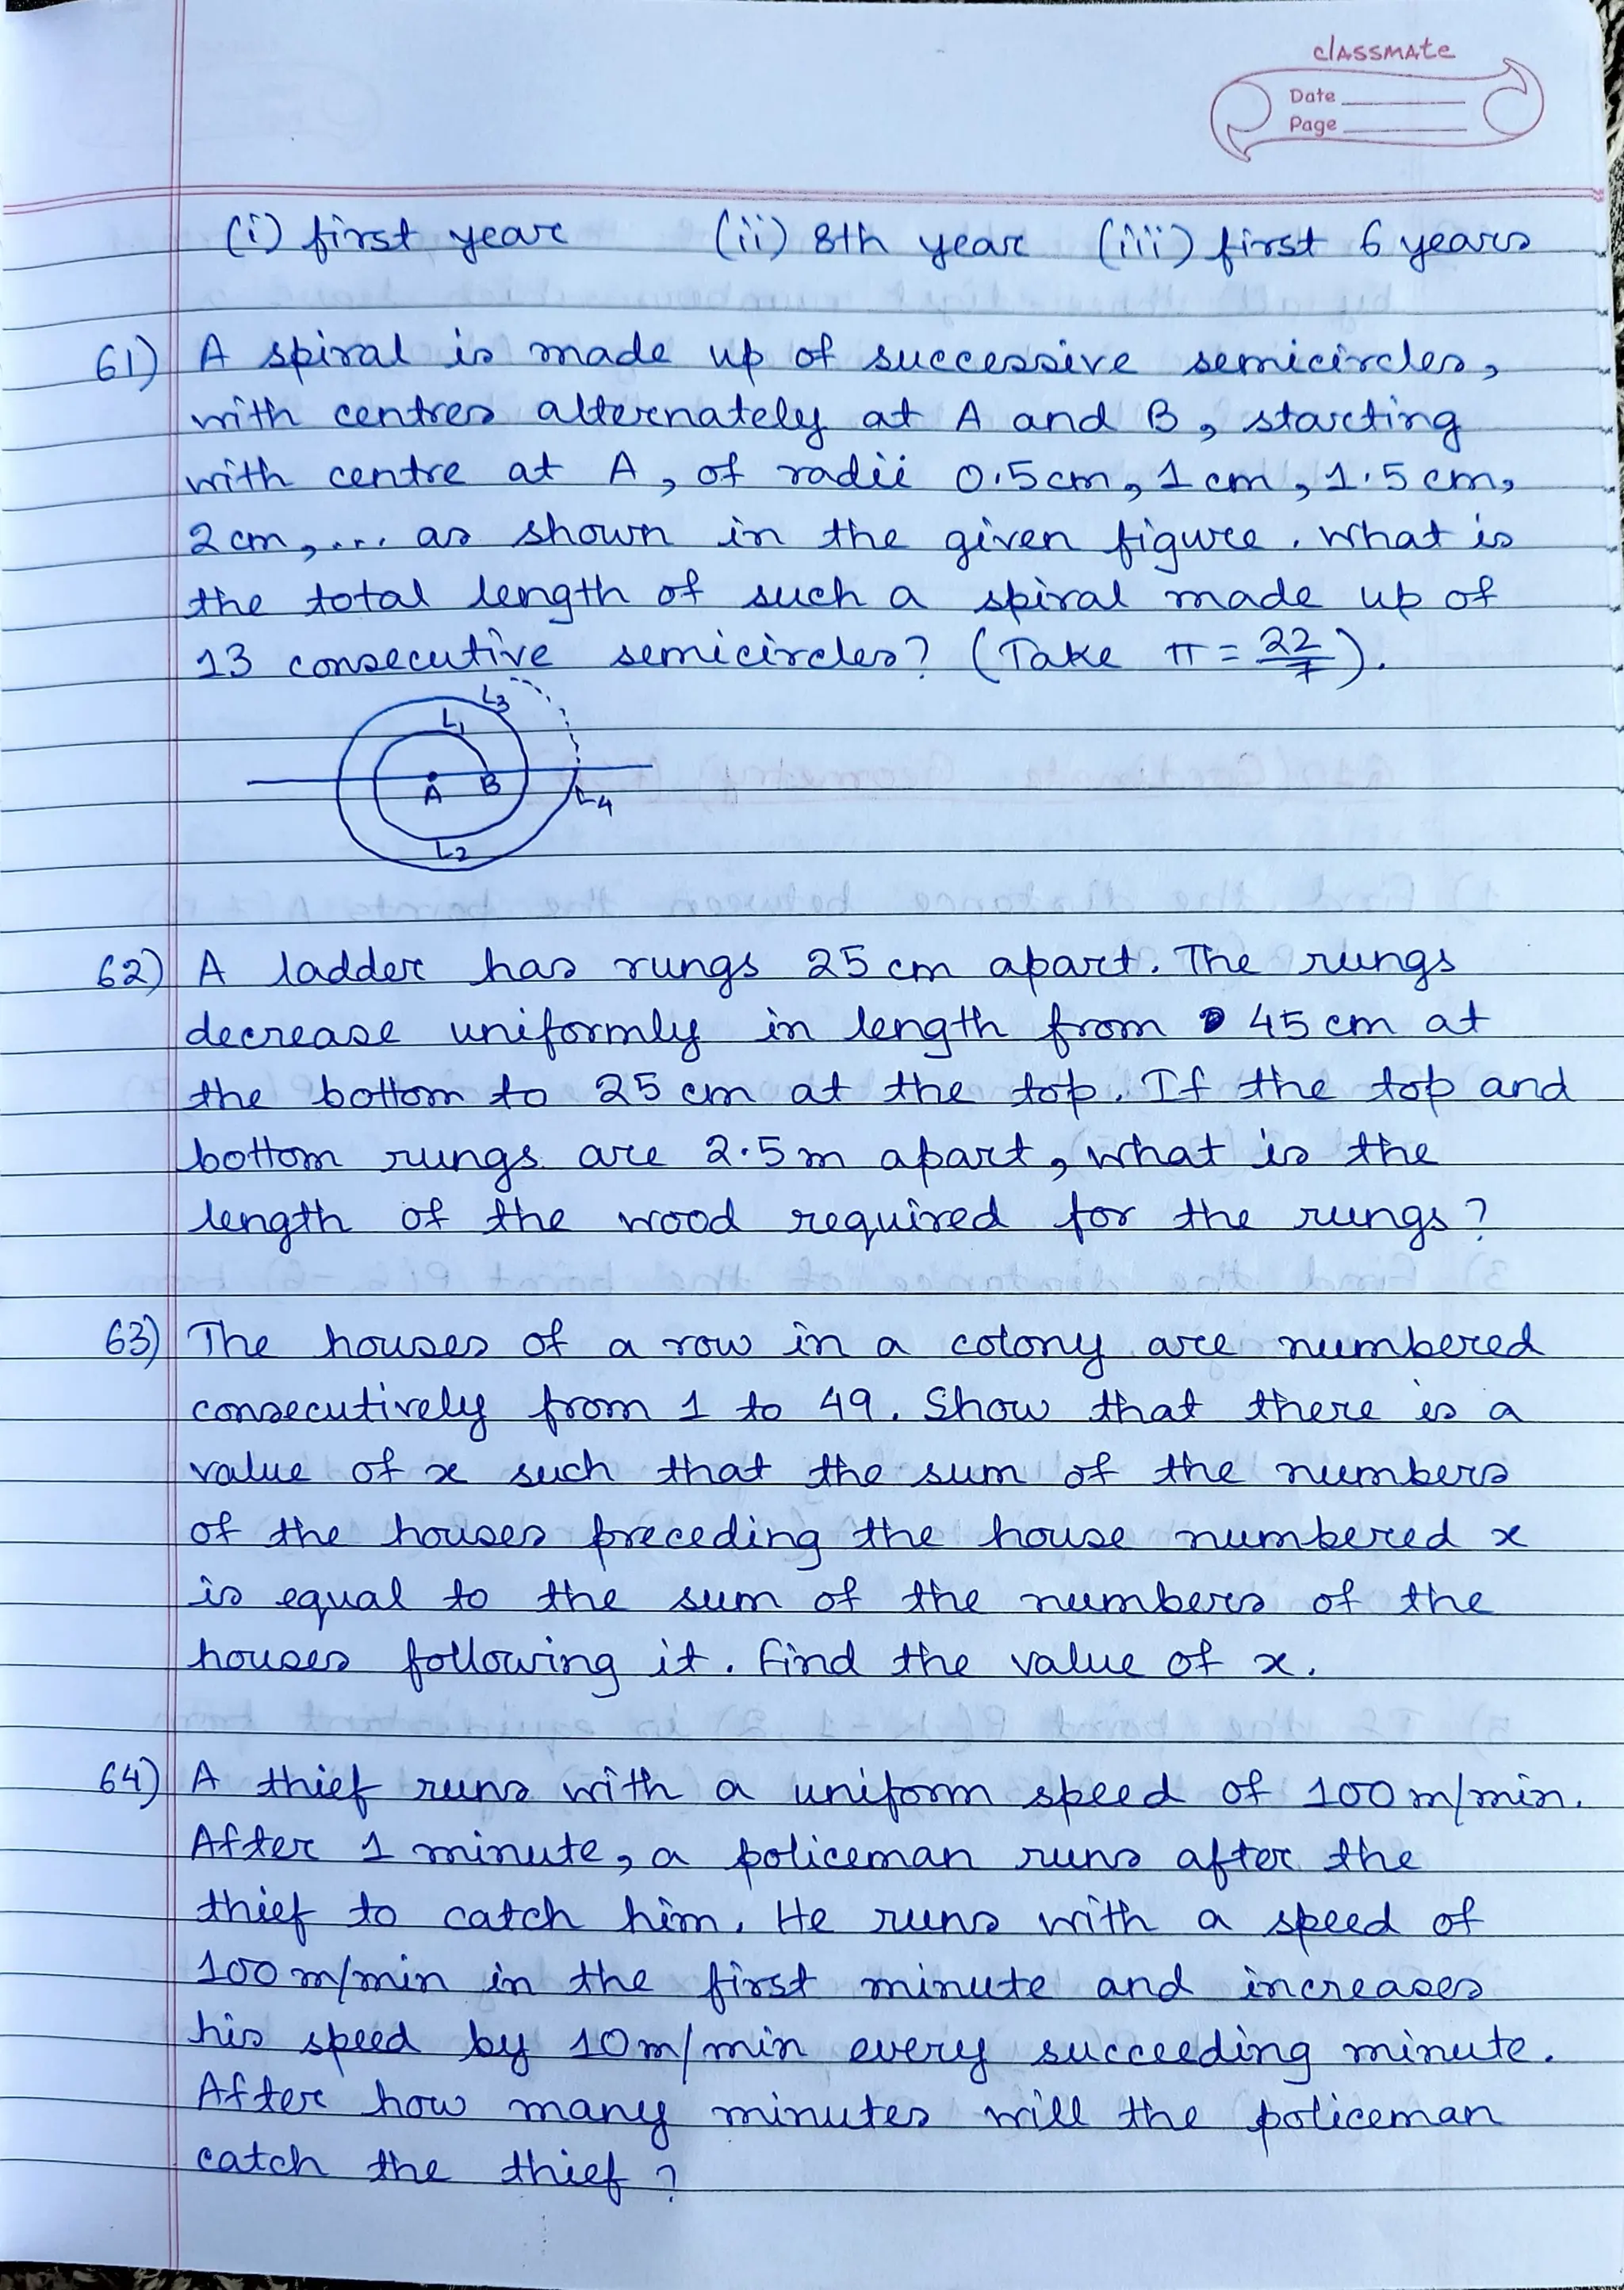 classmate
Date
Page
(i) first year (ii) 8th year (iii) first 6 years
61) A spiral is made up of successive semicircles,
with centres alternately at A and B, starting
with centre at A, of radii 0.5cm, 1 cm, 1.5 cm,
2 cm, ... as shown in the given figure. What is
the total length of such a spiral made up of
13 consecutive semicircles? (Take π = 22/7).
L3
L1
A B
L4
L2
62) A ladder has rungs 25 cm apart. The rungs
decrease uniformly in length from 45 cm at
the bottom to 25 cm at the top. If the top and
bottom rungs are 2.5 m apart, what is the
length of the wood required for the rungs?
63) The houses of a row in a colony are numbered
consecutively from 1 to 49. Show that there is a
value of x such that the sum of the numbers
of the houses preceding the house numbered x
is equal to the sum of the numbers of the
houses following it. Find the value of x.
64) A thief runs with a uniform speed of 100 m/min.
After 1 minute, a policeman runs after the
thief to catch him. He runs with a speed of
100 m/min in the first minute and increases
his speed by 10 m/min every succeeding minute.
After how many minutes will the policeman
catch the thief?